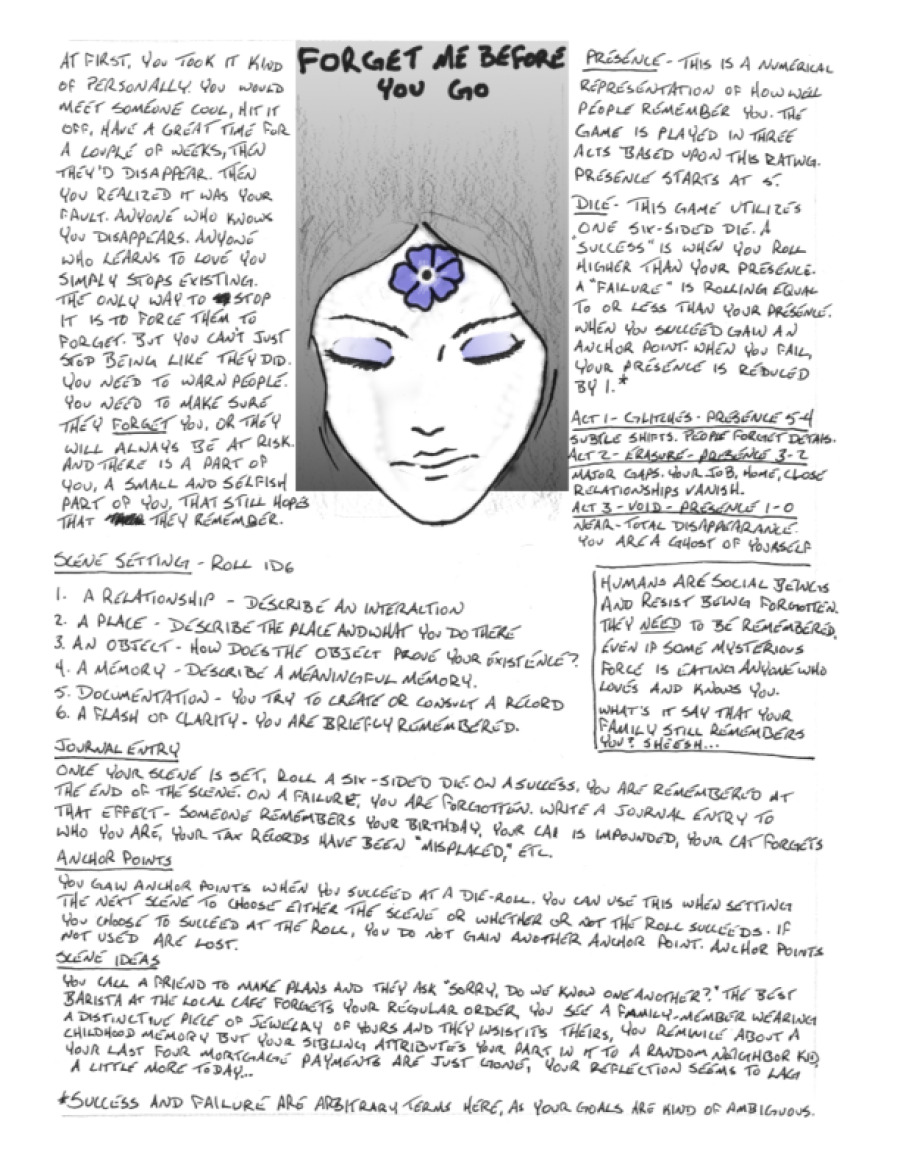 FORGET ME BEFORE
YOU GO
AT FIRST, YOU TOOK IT KIND
OF PERSONALLY. YOU WOULD
MEET SOMEONE COOL, HIT IT
OFF, HAVE A GREAT TIME FOR
A COUPLE OF WEEKS, THEN
THEY'D DISAPPEAR. THEN
YOU REALIZED IT WAS YOUR
FAULT. ANYONE WHO KNOWS
YOU DISAPPEARS. ANYONE
WHO LEARNS TO LOVE YOU
SIMPLY STOPS EXISTING.
THE ONLY WAY TO STOP
IT IS TO FORCE THEM TO
FORGET. BUT YOU CAN'T JUST
STOP BEING LIKE THEY DID.
YOU NEED TO WARN PEOPLE.
YOU NEED TO MAKE SURE
THEY FORGET YOU, OR THEY
WILL ALWAYS BE AT RISK.
AND THERE IS A PART OF
YOU, A SMALL AND SELFISH
PART OF YOU, THAT STILL HOPES
THAT THEY REMEMBER.
PRESENCE - THIS IS A NUMERICAL
REPRESENTATION OF HOW WELL
PEOPLE REMEMBER YOU. THE
GAME IS PLAYED IN THREE
ACTS BASED UPON THIS RATING.
PRESENCE STARTS AT 5.
DICE - THIS GAME UTILIZES
ONE SIX-SIDED DIE. A
"SUCCESS" IS WHEN YOU ROLL
HIGHER THAN YOUR PRESENCE.
A "FAILURE" IS ROLLING EQUAL
TO OR LESS THAN YOUR PRESENCE.
WHEN YOU SUCCEED GAIN AN
ANCHOR POINT. WHEN YOU FAIL,
YOUR PRESENCE IS REDUCED
BY 1.*
ACT 1 - GLITCHES - PRESENCE 5-4
SUBTLE SHIFTS. PEOPLE FORGET DETAILS.
ACT 2 - ERASURE - PRESENCE 3-2
MAJOR GAPS. YOUR JOB, HOME, CLOSE
RELATIONSHIPS VANISH.
ACT 3 - VOID - PRESENCE 1-0
NEAR-TOTAL DISAPPEARANCE.
YOU ARE A GHOST OF YOURSELF
SCENE SETTING - ROLL 1D6
1. A RELATIONSHIP - DESCRIBE AN INTERACTION
2. A PLACE - DESCRIBE THE PLACE AND WHAT YOU DO THERE
3. AN OBJECT - HOW DOES THE OBJECT PROVE YOUR EXISTENCE?
4. A MEMORY - DESCRIBE A MEANINGFUL MEMORY.
5. DOCUMENTATION - YOU TRY TO CREATE OR CONSULT A RECORD
6. A FLASH OF CLARITY - YOU ARE BRIEFLY REMEMBERED.
HUMANS ARE SOCIAL BEINGS
AND RESIST BEING FORGOTTEN.
THEY NEED TO BE REMEMBERED,
EVEN IF SOME MYSTERIOUS
FORCE IS EATING ANYONE WHO
LOVES AND KNOWS YOU.
WHAT'S IT SAY THAT YOUR
FAMILY STILL REMEMBERS
YOU? SHEESH...
JOURNAL ENTRY
ONCE YOUR SCENE IS SET, ROLL A SIX-SIDED DIE. ON A SUCCESS, YOU ARE REMEMBERED AT
THE END OF THE SCENE. ON A FAILURE, YOU ARE FORGOTTEN. WRITE A JOURNAL ENTRY TO
THAT EFFECT - SOMEONE REMEMBERS YOUR BIRTHDAY, YOUR CAR IS IMPOUNDED, YOUR CAT FORGETS
WHO YOU ARE, YOUR TAX RECORDS HAVE BEEN "MISPLACED," ETC.
ANCHOR POINTS
YOU GAIN ANCHOR POINTS WHEN YOU SUCCEED AT A DIE-ROLL. YOU CAN USE THIS WHEN SETTING
THE NEXT SCENE TO CHOOSE EITHER THE SCENE OR WHETHER OR NOT THE ROLL SUCCEEDS. IF
YOU CHOOSE TO SUCCEED AT THE ROLL, YOU DO NOT GAIN ANOTHER ANCHOR POINT. ANCHOR POINTS
NOT USED ARE LOST.
SCENE IDEAS
YOU CALL A FRIEND TO MAKE PLANS AND THEY ASK "SORRY, DO WE KNOW ONE ANOTHER?" THE BEST
BARISTA AT THE LOCAL CAFE FORGETS YOUR REGULAR ORDER, YOU SEE A FAMILY-MEMBER WEARING
A DISTINCTIVE PIECE OF JEWELRY OF YOURS AND THEY INSIST ITS THEIRS, YOU REMINICE ABOUT A
CHILDHOOD MEMORY BUT YOUR SIBLING ATTRIBUTES YOUR PART IN IT TO A RANDOM NEIGHBOR KID,
YOUR LAST FOUR MORTGAGE PAYMENTS ARE JUST GONE, YOUR REFLECTION SEEMS TO LAG
A LITTLE MORE TODAY...
*SUCCESS AND FAILURE ARE ARBITRARY TERMS HERE, AS YOUR GOALS ARE KIND OF AMBIGUOUS.